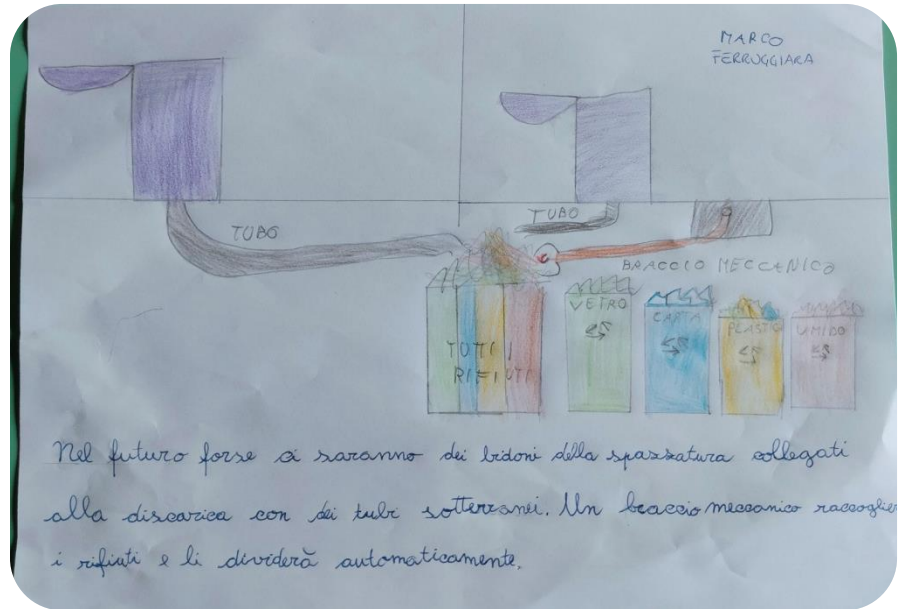 MARCO
FERRUGGIARA
TUBO
TUBO
BRACCIO MECCANICO
TUTTI I
RIFIUTI
VETRO
CARTA
PLASTIC
UMIDO
Nel futuro forse ci saranno dei bidoni della spazzatura collegati
alla discarica con dei tubi sotterranei. Un braccio meccanico raccoglie
i rifiuti e li dividerà automaticamente.